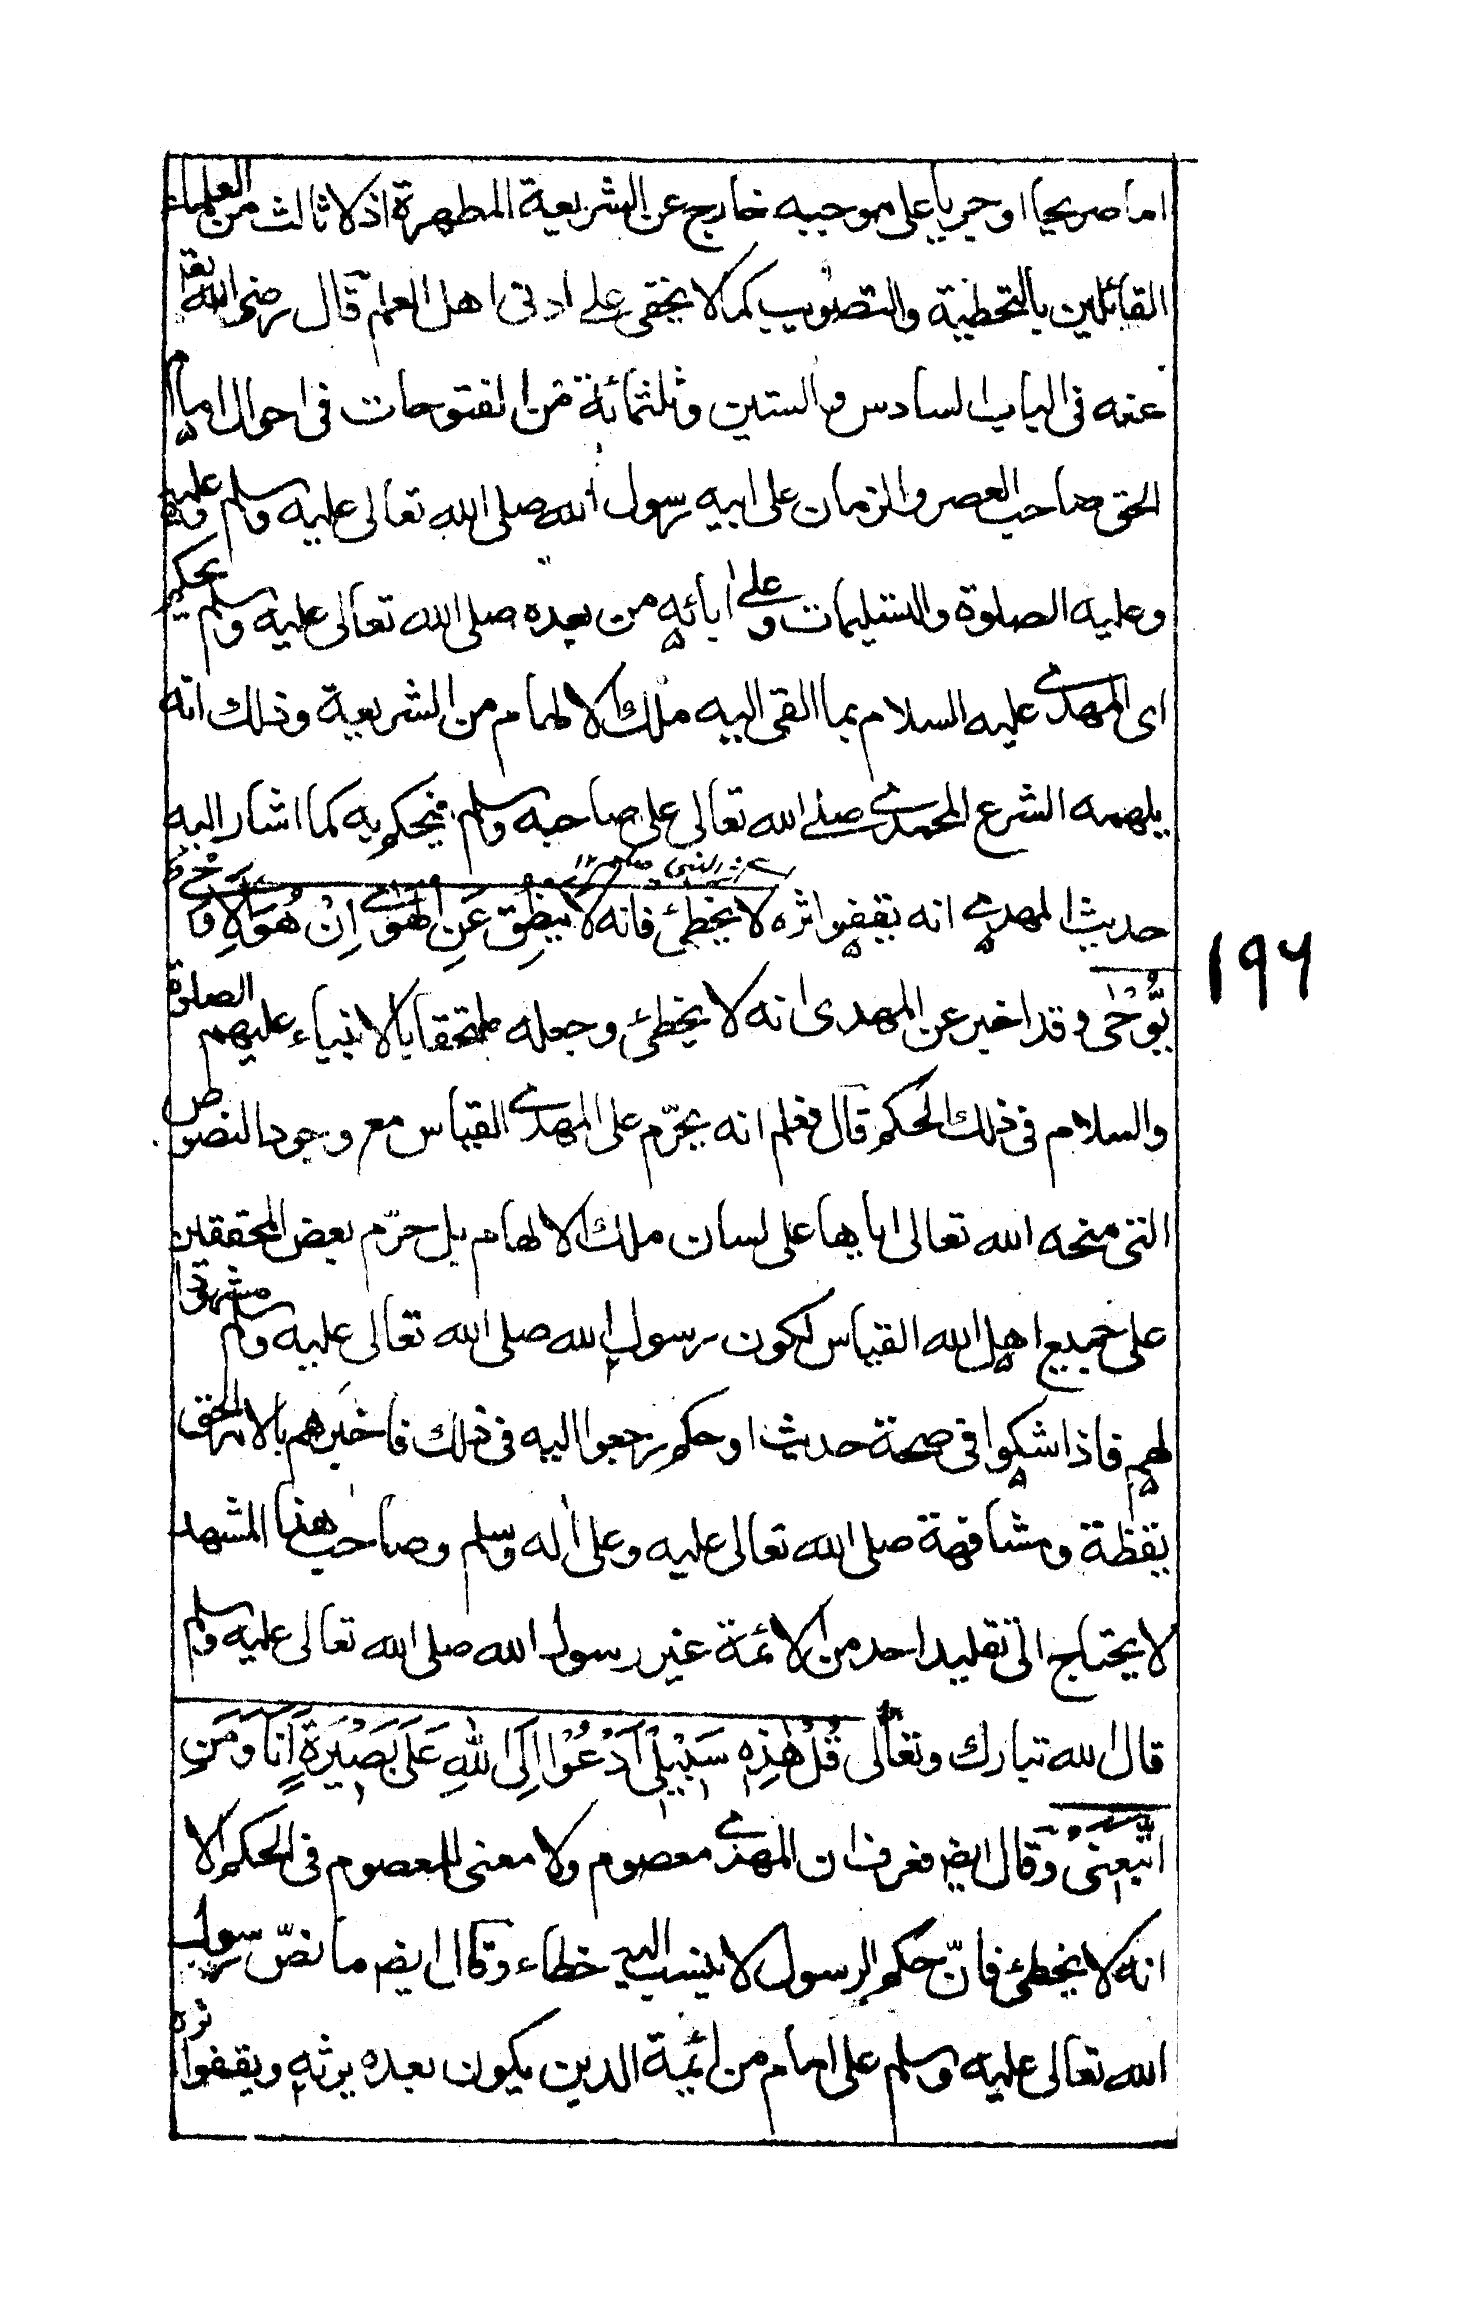 اما صريحا او جريا على موجبه خارج عن الشريعة المطهرة اذ لا ثالث من العلماء
القائلين بالتخطية والتصويب كما لا يخفى على ادنى اهل العلم قال رضى الله تعا
عنه فى الباب السادس والستين وثلثمائة من الفتوحات فى احوال امام
الحق صاحب العصر والزمان على ابيه رسول الله صلى الله تعالى عليه وسلم
وعليه الصلوة والتسليمات وعلى ابائه من بعده صلى الله تعالى عليه وسلم يحكم
اى المهدى عليه السلام بما القى اليه ملك الالهام من الشريعة وذلك انه
يلهمه الشرع المحمدى صلى الله تعالى على صاحبه وسلم فيحكم به كما اشار اليه
اى اثر النبى صلعم ١٢
حديث المهدى انه يقفوا اثره لا يخطئ فانه لا يَنْطِقُ عَنِ الْهَوٰى اِنْ هُوَ اِلَّا وَحْىٌ
يُّوْحٰى وقد اخبر عن المهدى انه لا يخطئ وجعله ملحقا بالانبياء عليهم الصلوة
والسلام فى ذلك الحكم قال فعلم انه يحرّم على المهدى القياس مع وجود النصوص
التى منحه الله تعالى اياها على لسان ملك الالهام بل حرّم بعض المحققين
على جميع اهل الله القياس لكون رسول الله صلى الله تعالى عليه وسلم مشهودا
لهم فاذا شكوا فى صحة حديث او حكم رجعوا اليه فى ذلك فاخبرهم بالامر الحق
يقظة ومشافهة صلى الله تعالى عليه وعلى اٰله وسلم وصاحب هذا المشهد
لا يحتاج الى تقليد احد من الائمة غير رسول الله صلى الله تعالى عليه وسلم
قال الله تبارك وتعالى قُلْ هٰذِهٖ سَبِيْلِىْ اَدْعُوْا اِلَى اللهِ عَلٰى بَصِيْرَةٍ اَنَا وَمَنِ
اتَّبَعَنِىْ وقال ايضا فعرف ان المهدى معصوم ولا معنى للمعصوم فى الحكم الا
انه لا يخطئ فانّ حكم الرسول لا ينسب اليه خطاء وقال ايضا ما نصّ رسول
الله تعالى عليه وسلم على امام من ائمة الدين يكون بعده يرثه ويقفوا اثره
١٩٦